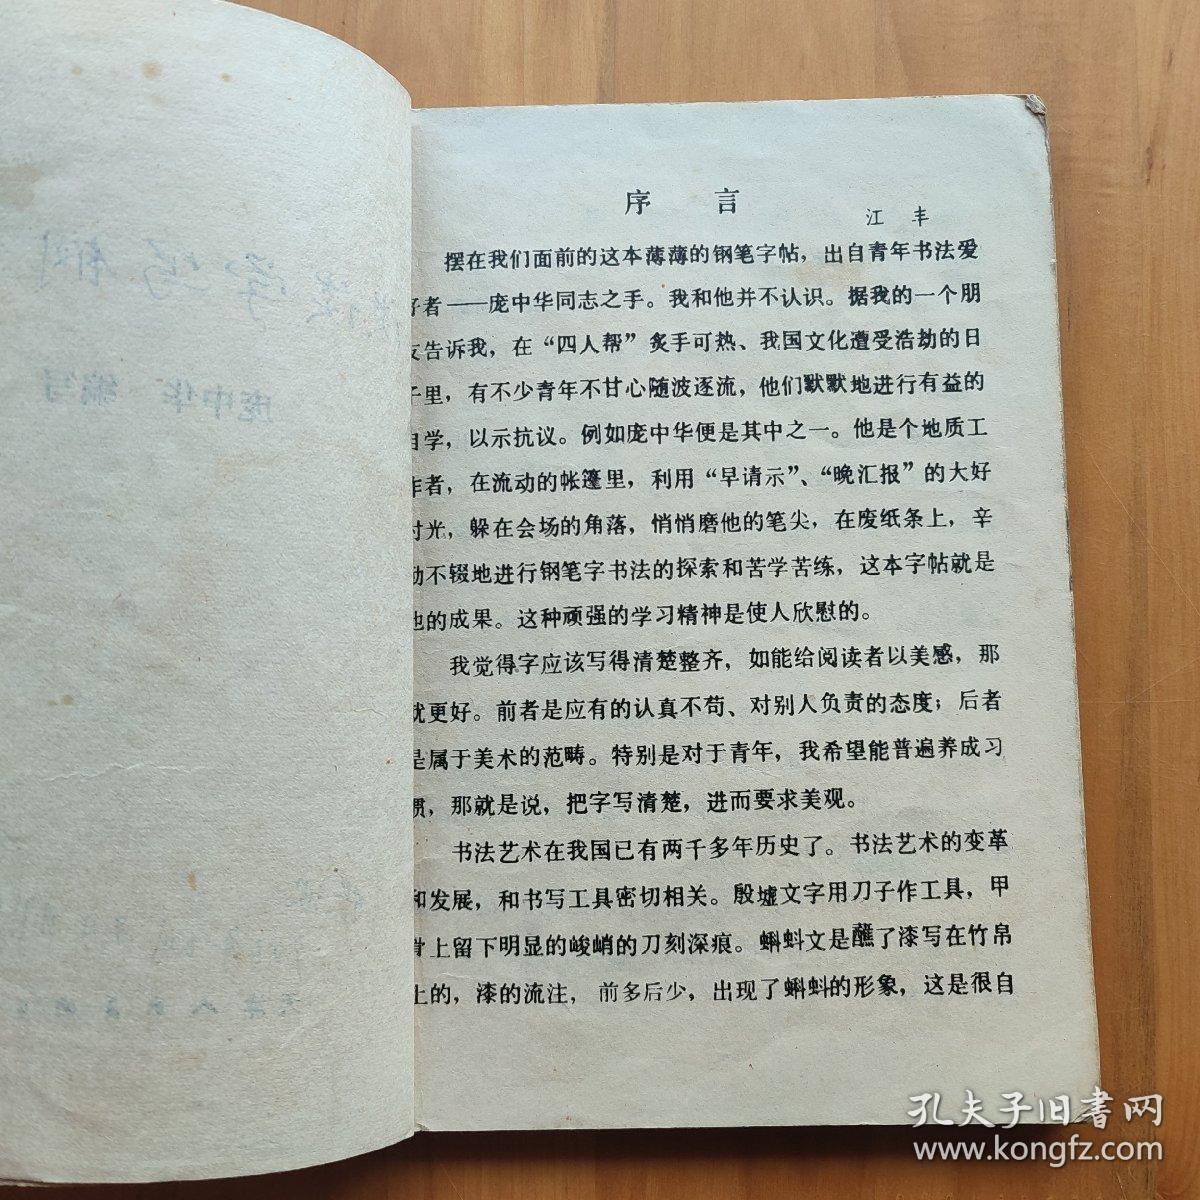 序 言
江 丰
摆在我们面前的这本薄薄的钢笔字帖，出自青年书法爱
好者——庞中华同志之手。我和他并不认识。据我的一个朋
友告诉我，在“四人帮”炙手可热、我国文化遭受浩劫的日
子里，有不少青年不甘心随波逐流，他们默默地进行有益的
自学，以示抗议。例如庞中华便是其中之一。他是个地质工
作者，在流动的帐篷里，利用“早请示”、“晚汇报”的大好
时光，躲在会场的角落，悄悄磨他的笔尖，在废纸条上，辛
勤不辍地进行钢笔字书法的探索和苦学苦练，这本字帖就是
他的成果。这种顽强的学习精神是使人欣慰的。
我觉得字应该写得清楚整齐，如能给阅读者以美感，那
就更好。前者是应有的认真不苟、对别人负责的态度；后者
是属于美术的范畴。特别是对于青年，我希望能普遍养成习
惯，那就是说，把字写清楚，进而要求美观。
书法艺术在我国已有两千多年历史了。书法艺术的变革
和发展，和书写工具密切相关。殷墟文字用刀子作工具，甲
骨上留下明显的峻峭的刀刻深痕。蝌蚪文是蘸了漆写在竹帛
上的，漆的流注，前多后少，出现了蝌蚪的形象，这是很自
庞中华 编写
孔夫子旧書网
www.kongfz.com